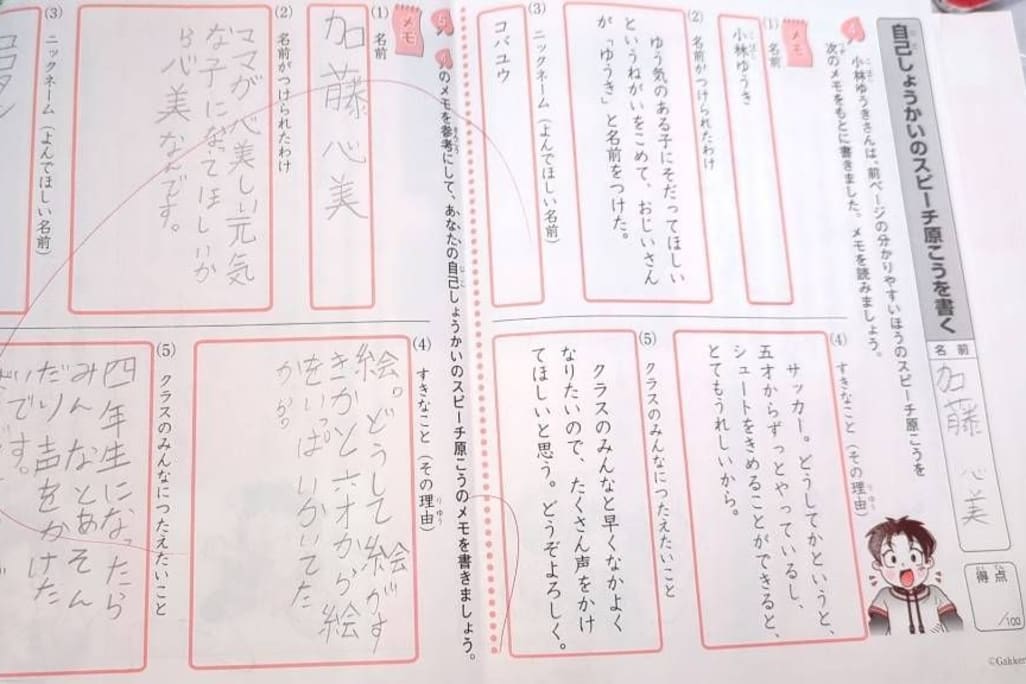 自己しょうかいのスピーチ原こうを書く
名前
加藤 心美
得点
/100
小林ゆうきさんは、前ページの分かりやすいほうのスピーチ原こうを
次のメモをもとに書きました。メモを読みましょう。
メモ
(1) 名前
小林ゆうき
(2) 名前がつけられたわけ
ゆう気のある子にそだってほしい
というねがいをこめて、おじいさん
が「ゆうき」と名前をつけた。
(3) ニックネーム（よんでほしい名前）
コバユウ
(4) すきなこと（その理由）
サッカー。どうしてかというと、
五才からずっとやっているし、
シュートをきめることができると、
とてもうれしいから。
(5) クラスのみんなにつたえたいこと
クラスのみんなと早くなかよく
なりたいので、たくさん声をかけ
てほしいと思う。どうぞよろしく。
のメモを参考にして、あなたの自己しょうかいのスピーチ原こうのメモを書きましょう。
メモ
(1) 名前
加藤心美
(2) 名前がつけられたわけ
ママが心美しい元気
な子になってほしいか
ら心美なんです。
(3) ニックネーム（よんでほしい名前）
(4) すきなこと（その理由）
絵。どうして絵がす
きかと六才から絵
をいっぱいかいてた
から。
(5) クラスのみんなにつたえたいこと
四年生になったら
みんなとあそん
だり声をかけた
いです。
©Gakken